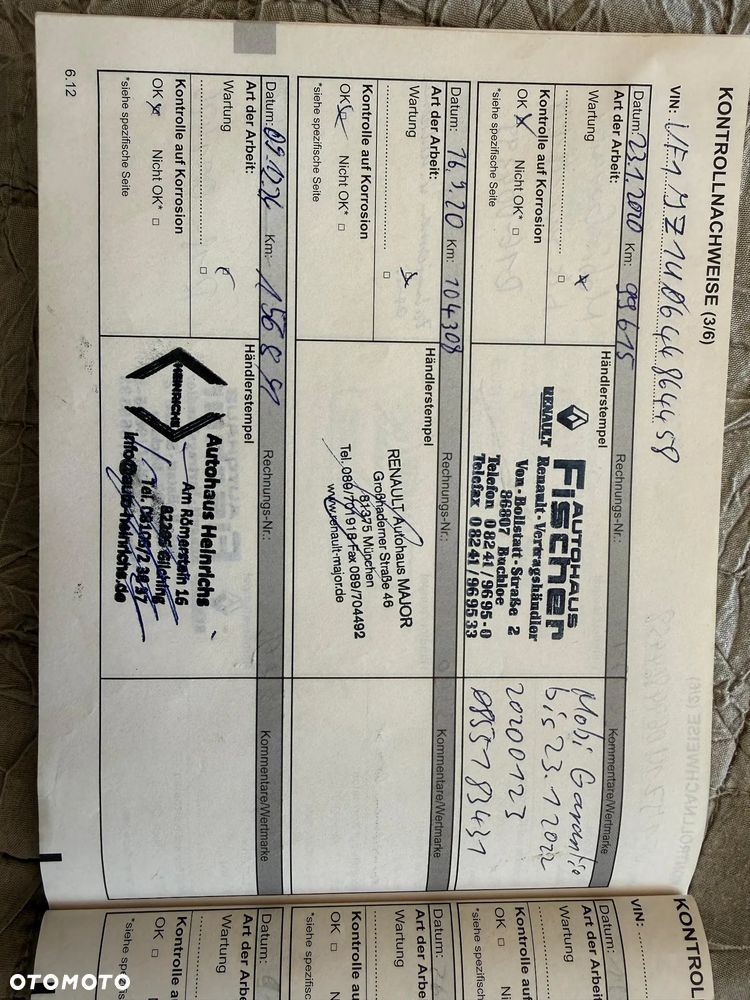 KONTROLLNACHWEISE (3/6)
VIN:
Datum: 23.1.2020 Km: 99615 Rechnungs-Nr.: Kommentare/Wertmarke
Art der Arbeit:
Wartung
Kontrolle auf Korrosion
OK Nicht OK*
*siehe spezifische Seite
Händlerstempel
AUTOHAUS
Fischer
RENAULT Renault-Vertragshändler
Von-Bollstatt-Straße 2
86807 Buchloe
Telefon 08241/9695-0
Telefax 08241/969533
Mobi Garantie
bis 23.1.2022
20200123
0855183431
Datum: 16.9.20 Km: 104308 Rechnungs-Nr.: Kommentare/Wertmarke
Art der Arbeit:
Wartung
Kontrolle auf Korrosion
OK Nicht OK*
*siehe spezifische Seite
Händlerstempel
RENAULT Autohaus MAJOR
Großhaderner Straße 46
81375 München
Tel. 089/701918-Fax 089/704492
www.renault-major.de
Datum: Km: Rechnungs-Nr.: Kommentare/Wertmarke
Art der Arbeit:
Wartung
Kontrolle auf Korrosion
OK Nicht OK*
*siehe spezifische Seite
Händlerstempel
HEINRICHS
Autohaus Heinrichs
Am Römerstein 16
82205 Gilching
info@auto-heinrichs.de
6.12
KONTROL
VIN:
Datum:
Art der Arbe
Wartung
Kontrolle a
OK
*siehe spezi
Datum:
Art der Arbe
Wartung
Kontrolle au
OK
*siehe spezifisc
Datum:
Art der Arbei
Wartung
Kontrolle au
OK
*siehe spezifi
OTOMOTO